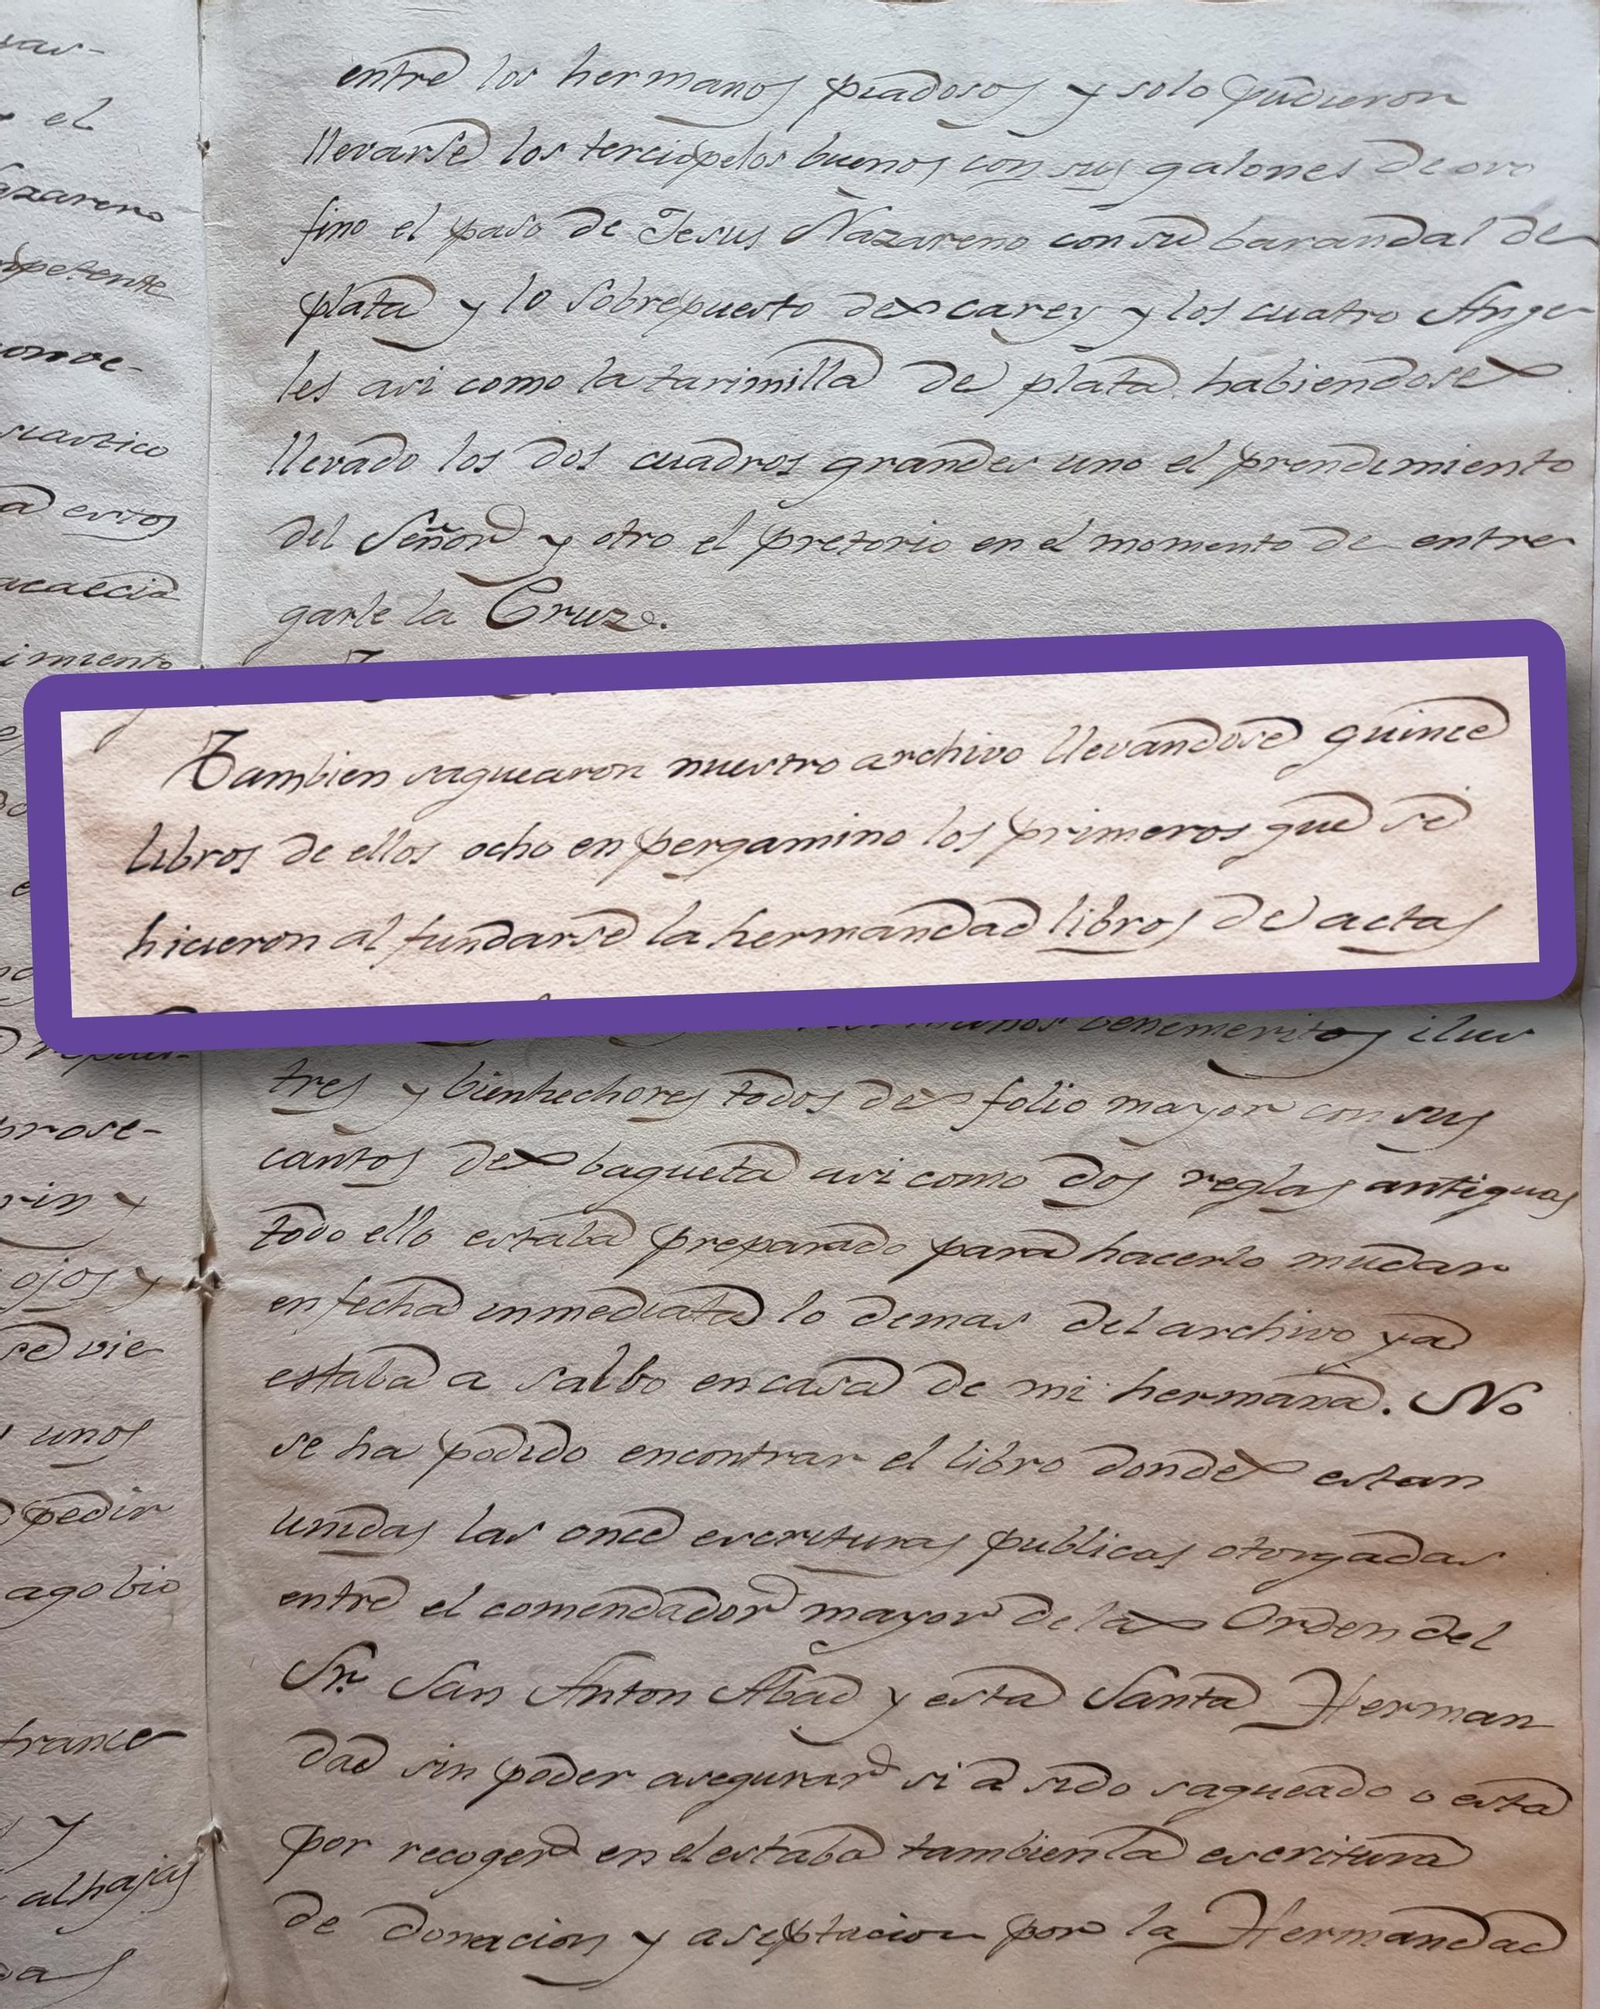 var-
el
azareno
mpetente
siastico
a estos
acaecia
imiento
prose-
rin y
ojos y
se vie
unos
pedir
agobio
france
y
alhajas
entre los hermanos piadosos y solo pudieron
llevarse los terciopelos buenos con sus galones de oro
fino el paso de Jesus Nazareno con su barandal de
plata y lo sobrepuesto de carey y los cuatro Ange
les asi como la tarimilla de plata habiendose
llevado los dos cuadros grandes uno el prendimiento
del Señor y otro el pretorio en el momento de entre
garle la Cruz.
Tambien saquearon nuestro archivo llevandose quince
libros de ellos ocho en pergamino los primeros que se
hicieron al fundarse la hermandad libros de actas
benemeritos ilus
tres y bienhechores todos de folio mayor con sus
cantos de baqueta asi como dos reglas antiguas
todo ello estaba preparado para hacerlo mudar
en fecha inmediata lo demas del archivo ya
estaba a salbo en casa de mi hermana. No
se ha podido encontrar el libro donde estan
unidas las once escrituras publicas otorgadas
entre el comendador mayor de la Orden del
Sr. San Anton Abad y esta Santa Herman
dad sin poder asegurar si a sido saqueado o esta
por recoger en el estaba tambien la escritura
de donacion y aseptacion por la Hermandad